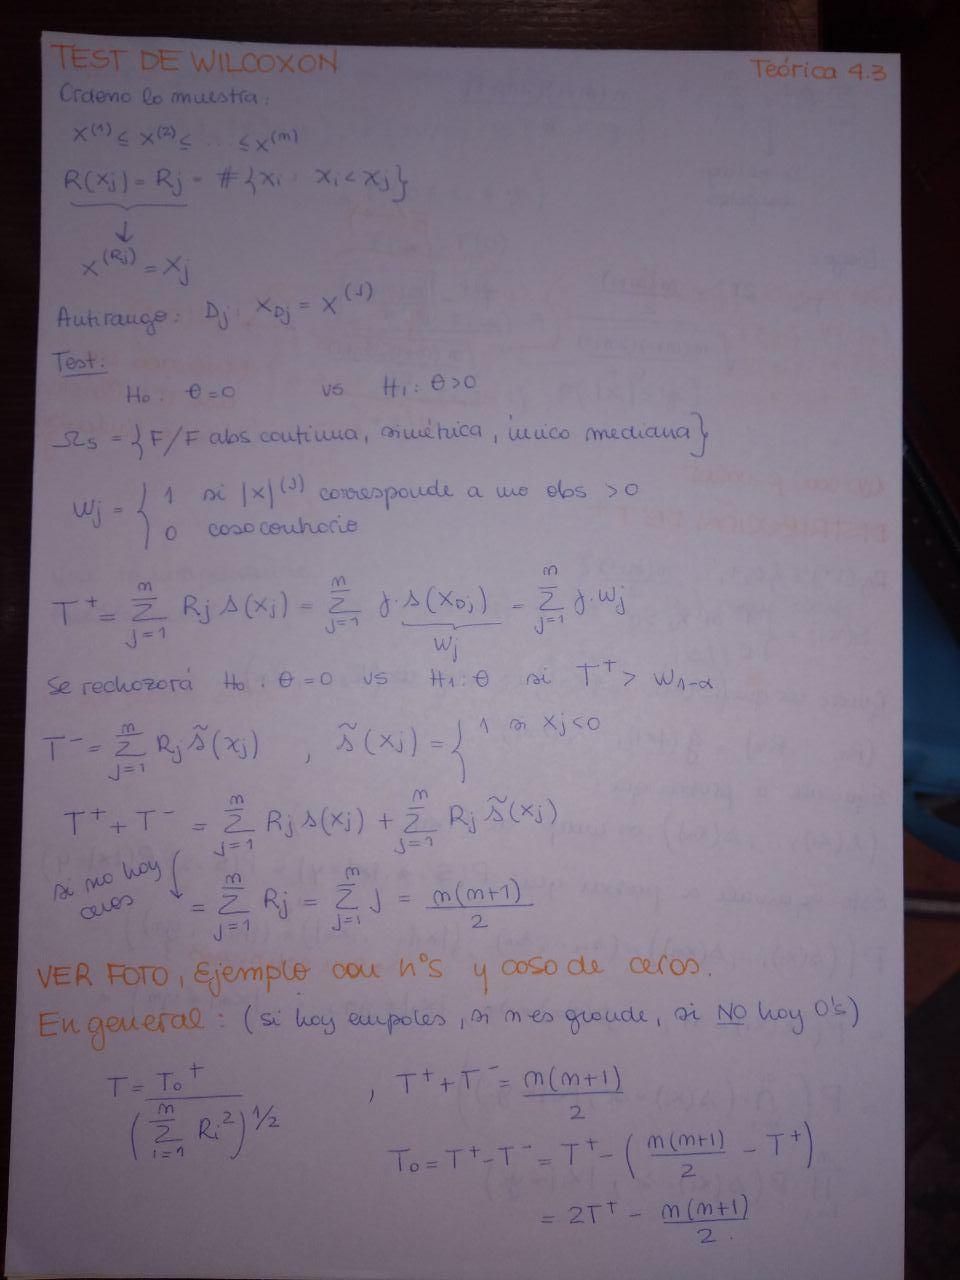 TEST DE WILCOXON
Teórica 4.3
Ordeno la muestra:
X^(1) ≤ X^(2) ≤ ... ≤ X^(n)
R(Xj) = Rj = #{Xi : Xi < Xj}
↓
X^(Rj) = Xj
Antirango: Dj : X_Dj = X^(J)
Test:
H0 : θ=0 vs H1 : θ>0
Ωs = {F/F abs continua, simétrica, única mediana}
Wj = { 1 si |X|^(J) corresponde a una obs >0
0 caso contrario
T⁺ = Σ_{j=1}^{n} Rj s(Xj) = Σ_{j=1}^{n} j·s(X_Dj) = Σ_{j=1}^{n} j·Wj
Wj
Se rechazará H0 : θ=0 vs H1 : θ si T⁺ > W_{1-α}
T⁻ = Σ_{j=1}^{n} Rj s̃(Xj) , s̃(Xj) = { 1 si Xj<0
T⁺ + T⁻ = Σ_{j=1}^{n} Rj s(Xj) + Σ_{j=1}^{n} Rj s̃(Xj)
si no hay ceros
= Σ_{j=1}^{n} Rj = Σ_{j=1}^{n} j = n(n+1)/2
VER FOTO, Ejemplo con nºs y caso de ceros.
En general: (si hay empates, si n es grande, si NO hay 0's)
T = T0⁺/(Σ_{i=1}^{n} Ri²)^{1/2} , T⁺ + T⁻ = n(n+1)/2
T0 = T⁺ - T⁻ = T⁺ - (n(n+1)/2 - T⁺)
= 2T⁺ - n(n+1)/2.